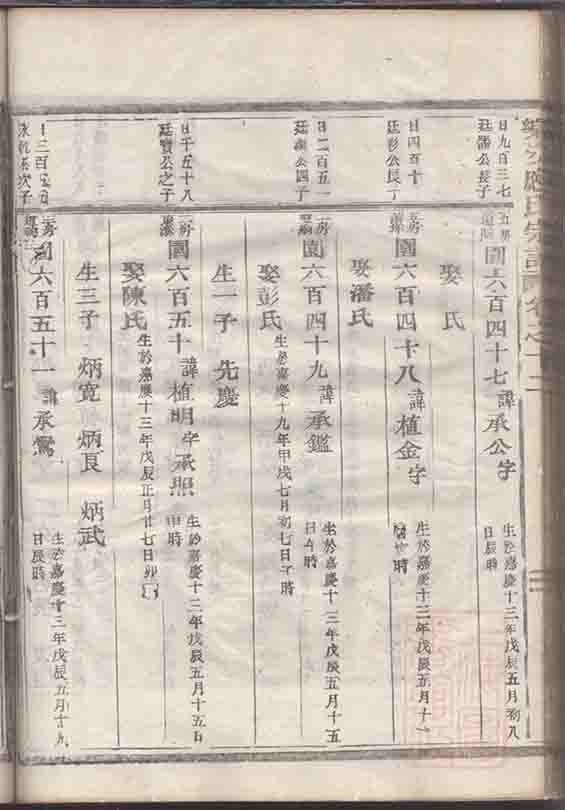 應氏宗譜卷之十二
日九百三七
廷潘公長子
國六百四十七 諱承公字
生於嘉慶十三年戊辰五月初八
日辰時
娶 氏
日四百十
廷彩公長子
二房
國六百四十八 諱植金字
生於嘉慶十三年戊辰五月十一
時
娶潘氏
日二百五一
公四子
房
國六百四十九 諱承鑑
生於嘉慶十三年戊辰五月十五
日午時
娶彭氏
生於嘉慶十九年甲戌七月初七日子時
生一子 先慶
日千五十八
廷寶公之子
二房
國六百五十 諱植明字承照
生於嘉慶十三年戊辰五月十五日
申時
娶陳氏
生於嘉慶十三年戊辰正月廿七日卯時
生三子 炳寬 炳良 炳武
公次子
房
國六百五十一 諱承鸞
生於嘉慶十三年戊辰五月十九
日辰時